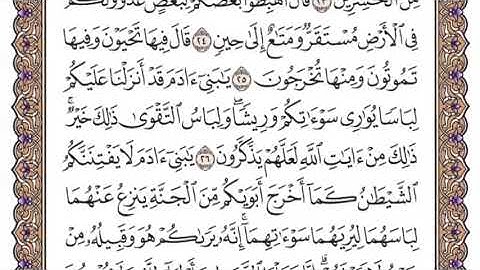 مِنَ ٱلْخَٰسِرِينَ ٢٣ قَالَ ٱهْبِطُوا۟ بَعْضُكُمْ لِبَعْضٍ عَدُوٌّ وَلَكُمْ
فِى ٱلْأَرْضِ مُسْتَقَرٌّ وَمَتَٰعٌ إِلَىٰ حِينٍ ٢٤ قَالَ فِيهَا تَحْيَوْنَ وَفِيهَا
تَمُوتُونَ وَمِنْهَا تُخْرَجُونَ ٢٥ يَٰبَنِىٓ ءَادَمَ قَدْ أَنزَلْنَا عَلَيْكُمْ
لِبَاسًا يُوَٰرِى سَوْءَٰتِكُمْ وَرِيشًا ۖ وَلِبَاسُ ٱلتَّقْوَىٰ ذَٰلِكَ خَيْرٌ ۚ
ذَٰلِكَ مِنْ ءَايَٰتِ ٱللَّهِ لَعَلَّهُمْ يَذَّكَّرُونَ ٢٦ يَٰبَنِىٓ ءَادَمَ لَا يَفْتِنَنَّكُمُ
ٱلشَّيْطَٰنُ كَمَآ أَخْرَجَ أَبَوَيْكُم مِّنَ ٱلْجَنَّةِ يَنزِعُ عَنْهُمَا
لِبَاسَهُمَا لِيُرِيَهُمَا سَوْءَٰتِهِمَآ ۗ إِنَّهُۥ يَرَىٰكُمْ هُوَ وَقَبِيلُهُۥ مِنْ